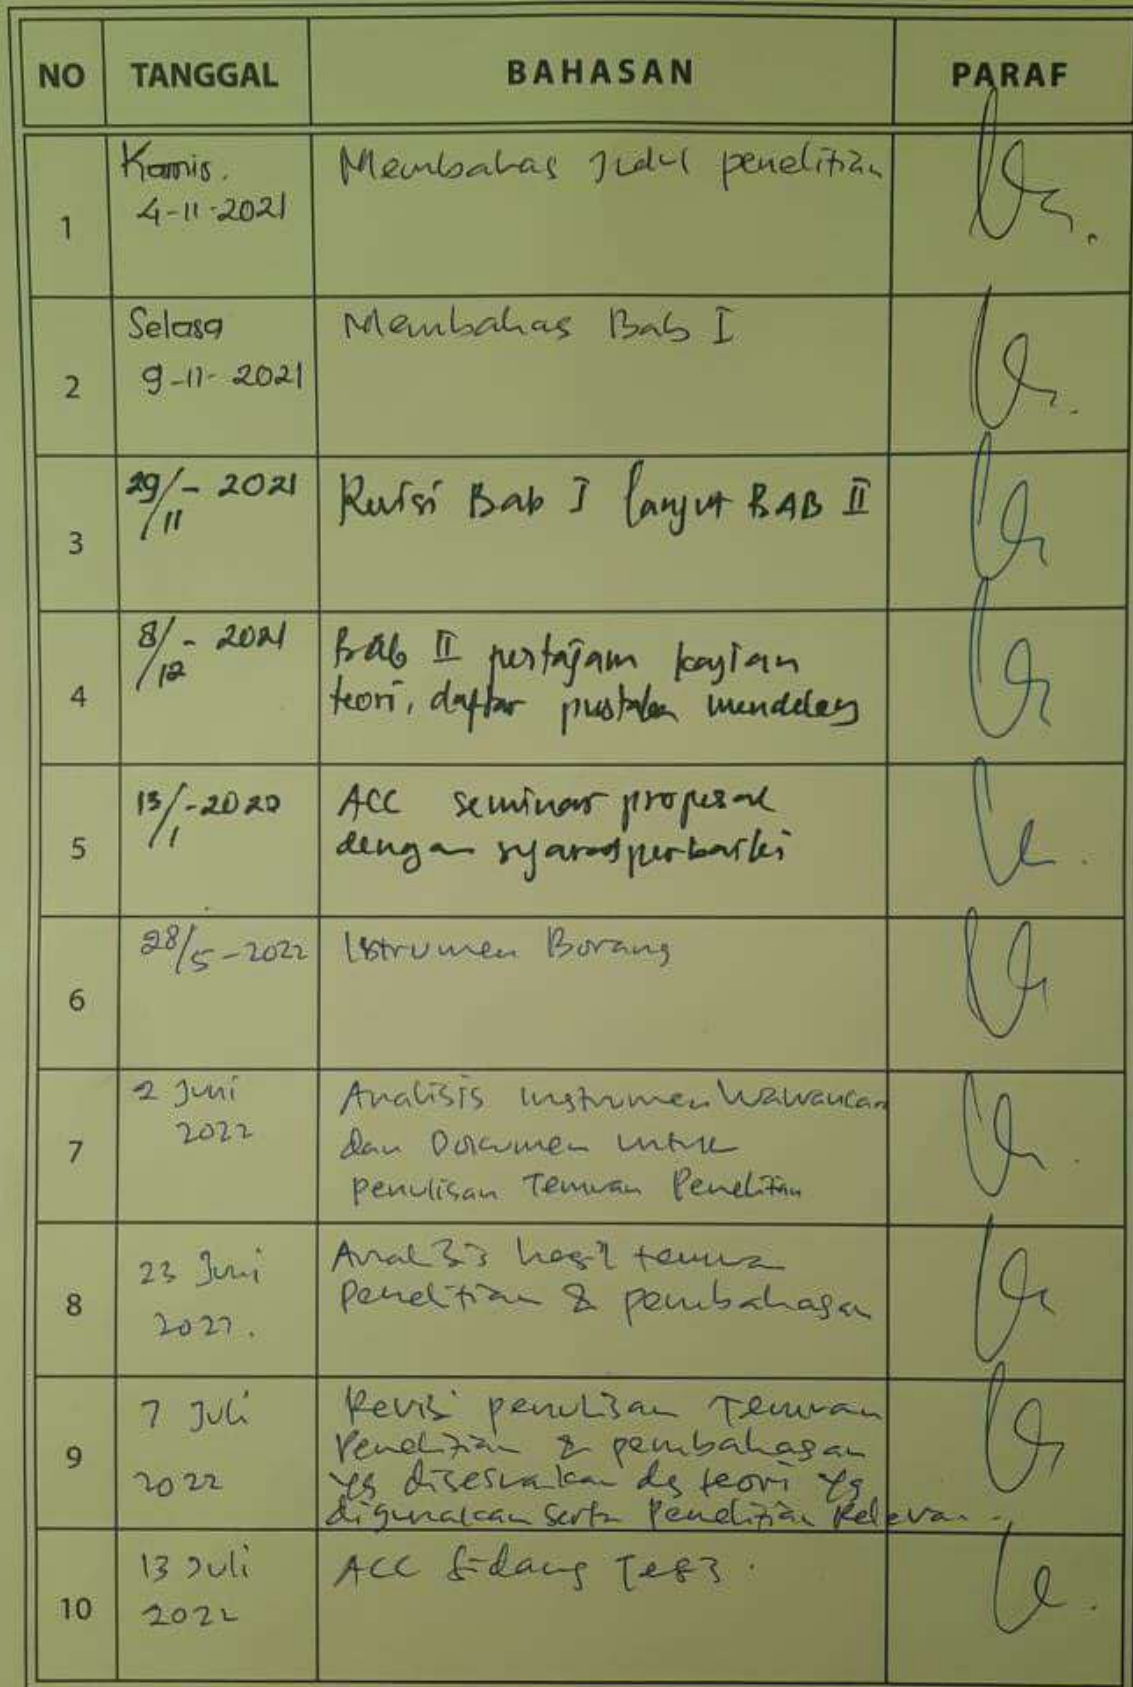 NO TANGGAL BAHASAN PARAF
1 Kamis. Membahas Judul penelitian
4-11-2021
2 Selasa Membahas Bab I
9-11-2021
3 29/11 - 2021 Revisi Bab I lanjut BAB II
4 8/12 - 2021 Bab II pertajam kajian
teori, daftar pustaka mendeley
5 13/1 - 2020 ACC seminar proposal
dengan syarat perbaiki
6 28/5 - 2022 Istrumen Borang
7 2 Juni Analisis instrumen Wawancara
2022 dan Dokumen untuk
penulisan Temuan Penelitian
8 23 Juni Analisis hasil temua
2022. Penelitian & pembahasan
9 7 Juli Revisi penulisan Temuan
2022 Penelitian & pembahasan
yg disesuaikan dg teori yg
digunakan serta Penelitian Relevan
10 13 Juli ACC Sidang Tesis.
2022